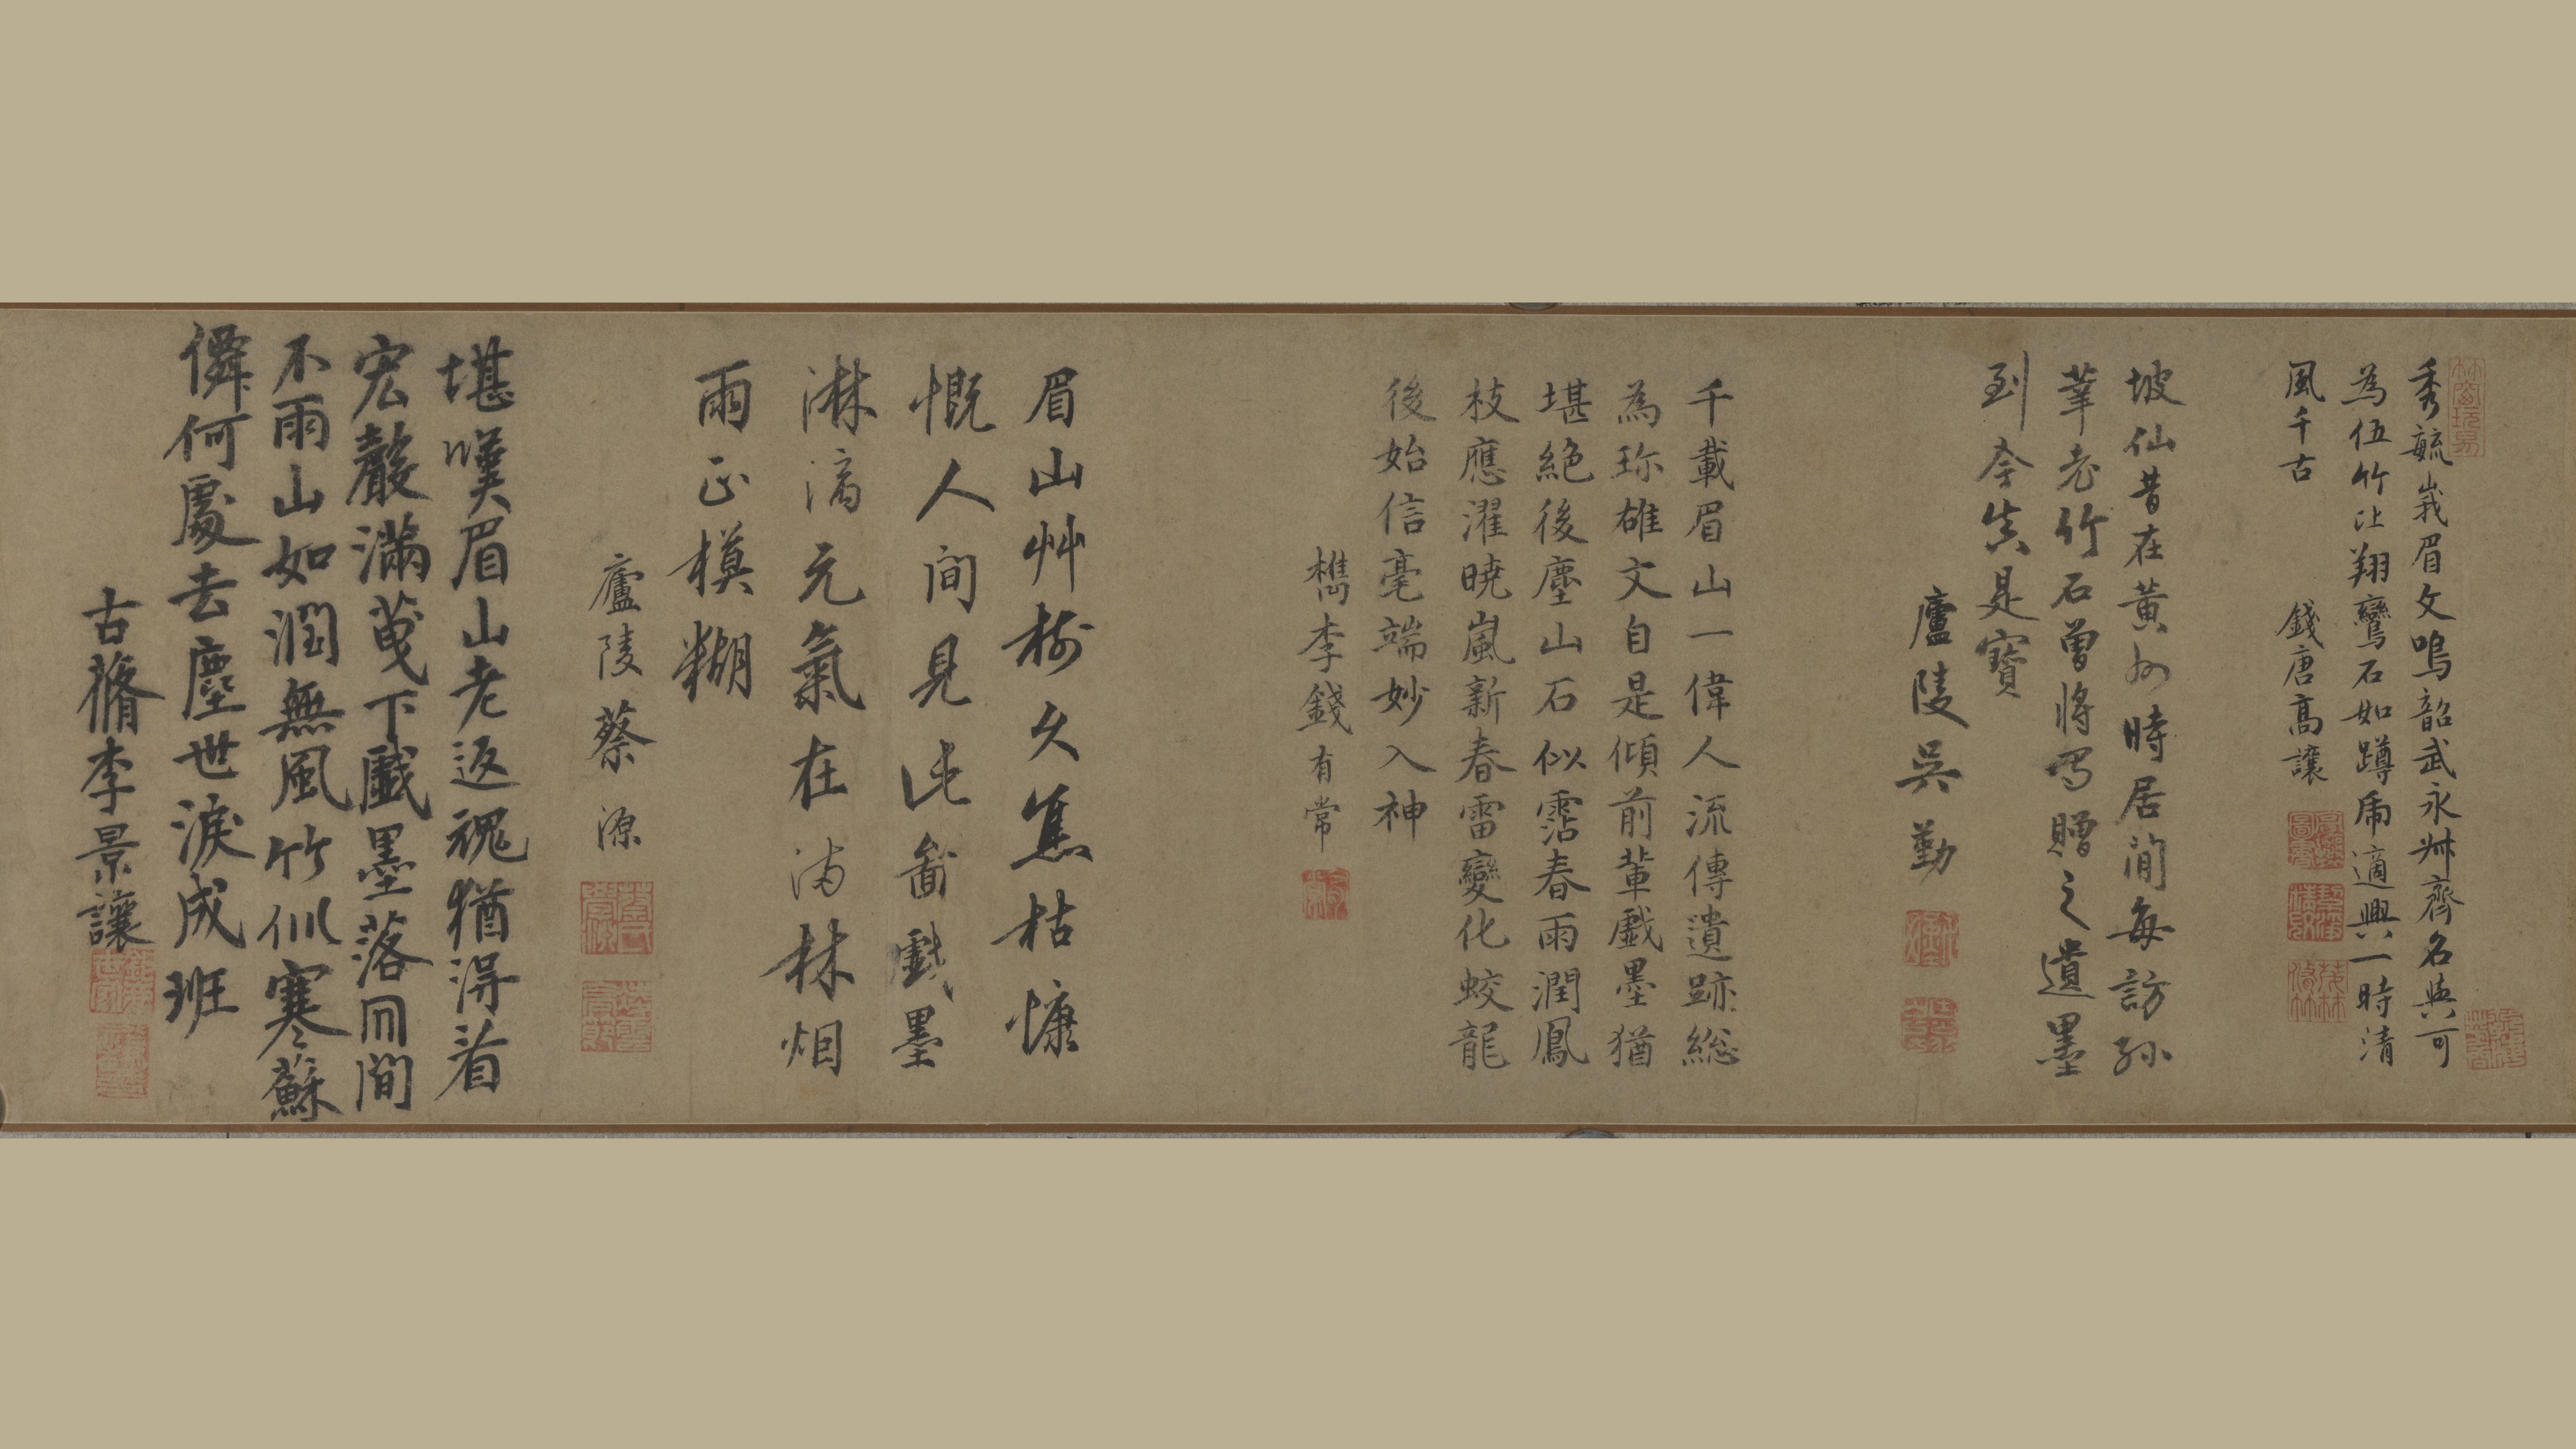 秀毓峩眉文鳴韶武永州齊名與可
為伍竹上翔鸞石如蹲虎適興一時清
風千古
錢唐高讓
坡仙昔在黃州時居閒每訪孫
莘老竹石曾將寫贈之遺墨
到今真是寶
廬陵吳勤
千載眉山一偉人流傳遺跡總
為珎雄文自是傾前輩戲墨猶
堪絕後塵山石似霑春雨潤鳳
枝應濯曉嵐新春雷變化蛟龍
後始信毫端妙入神
檇李錢有常
眉山艸樹久焦枯慷
慨人間見此啚戲墨
淋漓元氣在滿林烟
雨正模糊
廬陵蔡源
堪嘆眉山老返魂猶得着
宏聲滿蓃下戲墨落人間
不雨山如潤無風竹似寒蘇
僊何處去塵世淚成班
古蓨李景讓